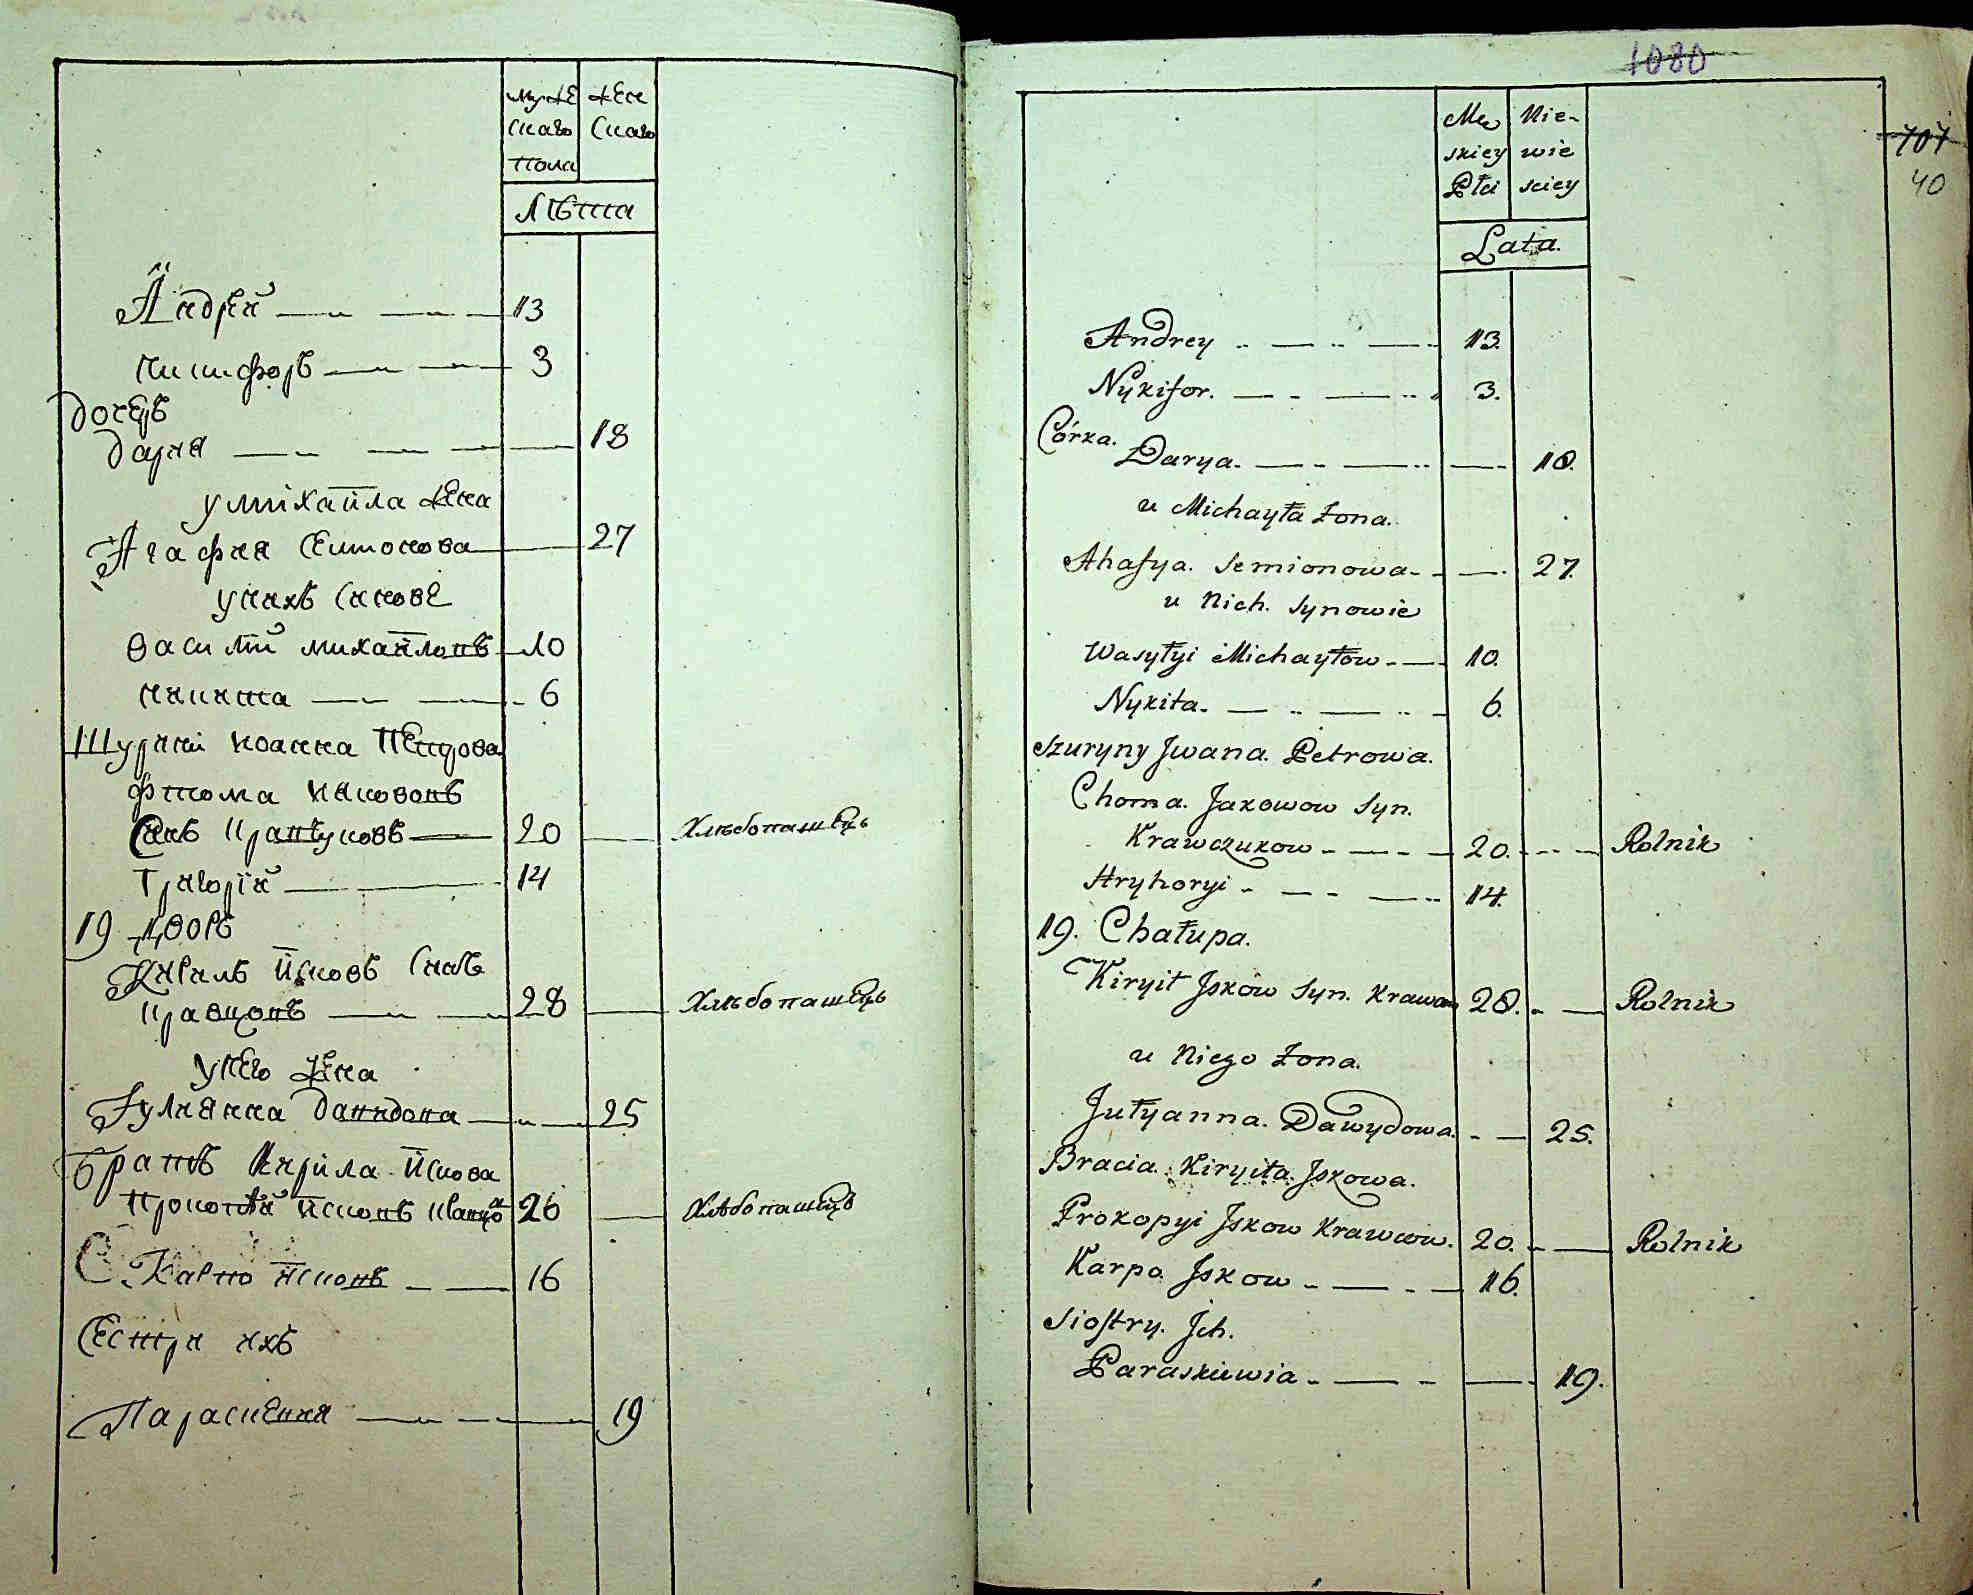 муже
скаго
пола
жен
скаго
лѣта
Андрей 13
Никифоръ 3
дочеръ
Дария 18
у михайла жена
Агафия Семионова 27
у нихъ синове
Василий михайловъ 10
никита 6
Шурини иоанна Петрова
Фтома иакововъ
синъ кравчуковъ 20 Хлѣбопашецъ
Григорий 14
19 дворъ
Кирилъ исковъ синъ
кравцовъ 28 Хлѣбопашецъ
у него жена
Іулиянна давидова 25
братъ Кирила искова
прокопий исковъ кравцо 26 Хлѣбопашецъ
Карпо исковъ 16
Сестри ихъ
Параскевия 19
1080
Mę
skiey
Płci
Nie-
wie
sciey
Lata.
707
40
Andrey 13.
Nykifor. 3.
Córka.
Darya. 18.
u Michayła Żona.
Ahafya. Semionowa 27.
u Nich. Synowie
Wasylyi Michayłow 10.
Nykita. 6.
Szuryny Jwana. Petrowa.
Choma. Jakowow Syn.
Krawczukow 20. Rolnik
Hryhoryi 14.
19. Chałupa.
Kiryił Jskow Syn. Krawcow 28. Rolnik
u Niego Żona.
Jułyanna. Dawydowa. 25.
Bracia. Kiryiła. Jskowa.
Prokopyi Jskow Krawcow. 20. Rolnik
Karpo. Jskow 16.
Siostry. Jch.
Paraskiewia 19.